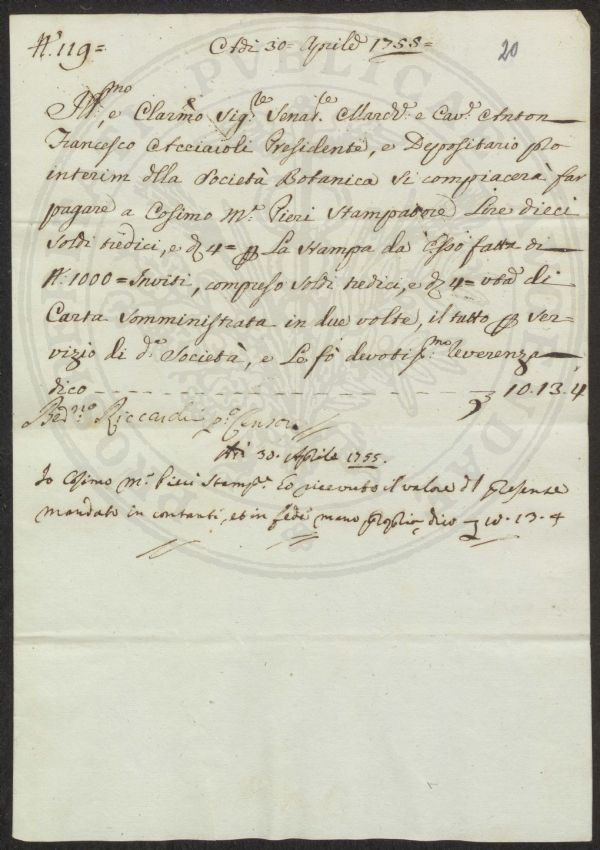 N.° 119 =
Adì 30 = Aprile 1755 =
20
Ill.mo, e Clarmo Sig.re Senat.re March.e e Cav.e Anton
Francesco Acciaioli Presidente, e Depositario pro
interim dlla Società Botanica si compiacerà far
pagare a Cosimo M.a Pieri Stampatore Lire dieci
soldi tredici, e d 4 = p La stampa da Esso fatta di
N.° 1000 = Inviti, compreso soldi tredici, e d 4 = di
Carta somministrata in due volte, il tutto p ser-
vizio di d.a Società, e Le fò devotis.mo reverenza
dico 10.13.4
Riccardi p.o Censore
Adì 30. Aprile 1755.
Io Cosimo M.a Pieri Stamp.re ho ricevuto il valore dl presente
mandato in contanti, et in fede mano propria dico 10.13.4